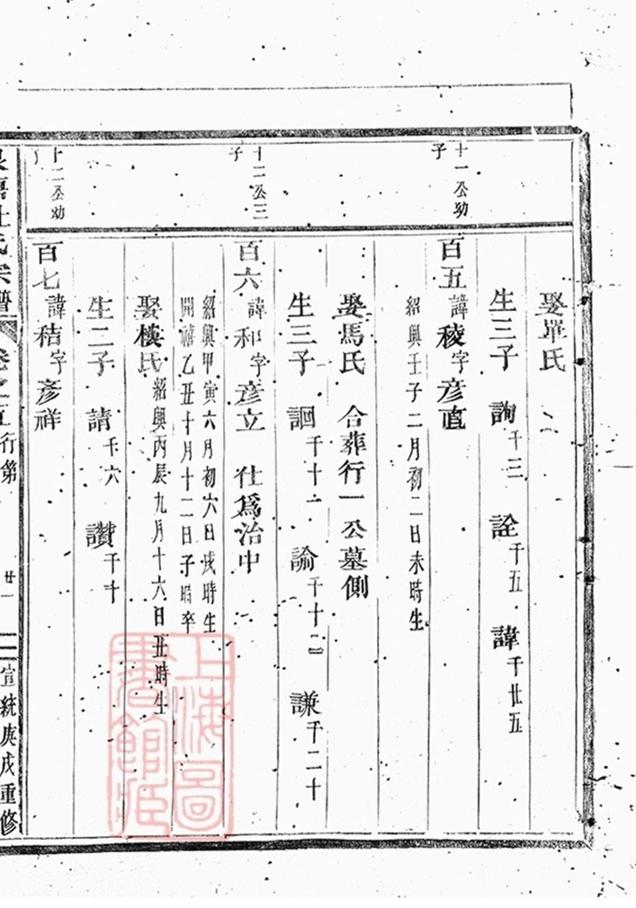 娶單氏
生三子 詢千三 詮千五 諱千廿五
十一公幼子
百五諱稜字彥直
紹興壬子二月初二日未時生
娶馬氏 合葬行一公墓側
生三子 詷千十一 諭千十二 謙千二十
十二公三子
百六諱和字彥立 仕爲治中
紹興甲寅六月初六日戌時生
開禧乙丑十月十二日子時卒
娶樓氏紹興丙辰九月十六日丑時生
生二子 請千六 讚千十
十二公幼
百七諱秸字彥祥
杜氏宗譜 卷之五行第 廿一 宣統庚戌重修
上海圖書館藏